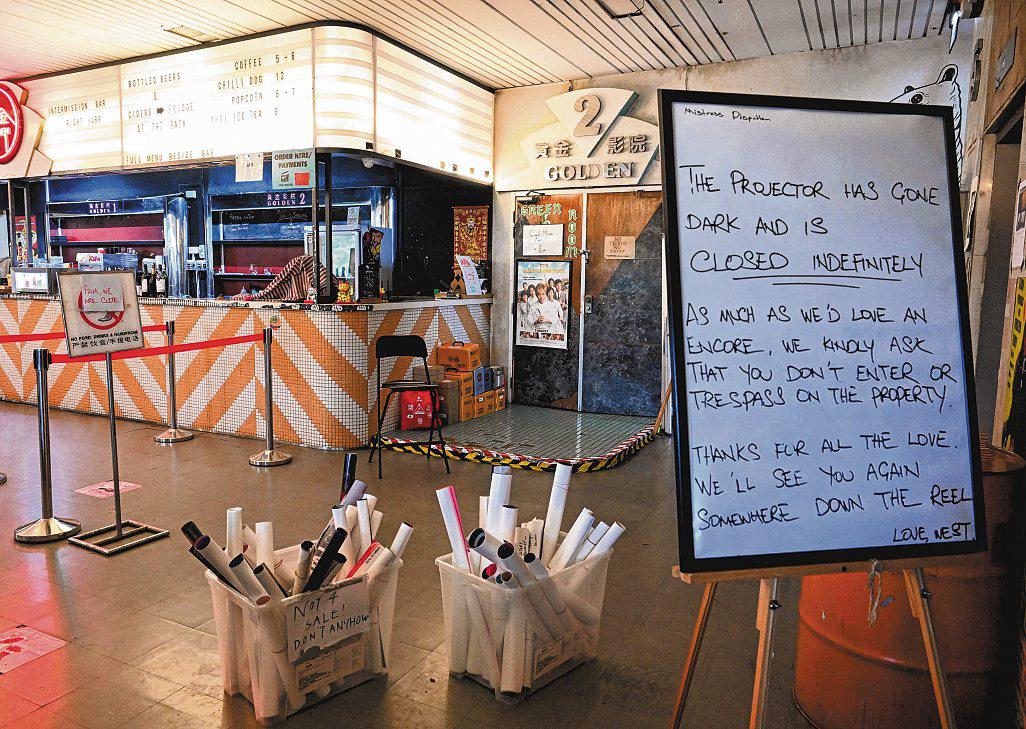 COFFEE 5 - 6
BOTTLED BEERS
CHILLY DOG 12
&
INTERMISSION BAR
CIDERS ➡ FRIDGE
POPCORN 6 - 7
RIGHT HURR
AT THE BACK
THAI ICE TEA 6
FULL MENU BESIDE BAR
ORDER HERE/
PAYMENTS
黃金戲院 1
GOLDEN
黃金戲院 2
GOLDEN
2
黃金 影院
GOLDEN
GREEN
ROOM
FAM, WE
ARE CLOSE
NO FOOD DRINKS & HANDPHONE
严禁饮食/手提电话
NOT 4
SALE!
DON'T ANYHOW
THE PROJECTOR HAS GONE
DARK AND IS
CLOSED INDEFINITELY
AS MUCH AS WE'D LOVE AN
ENCORE, WE KINDLY ASK
THAT YOU DON'T ENTER OR
TRESPASS ON THE PROPERTY.
THANKS FOR ALL THE LOVE.
WE'LL SEE YOU AGAIN
SOMEWHERE DOWN THE REEL
LOVE, NEST